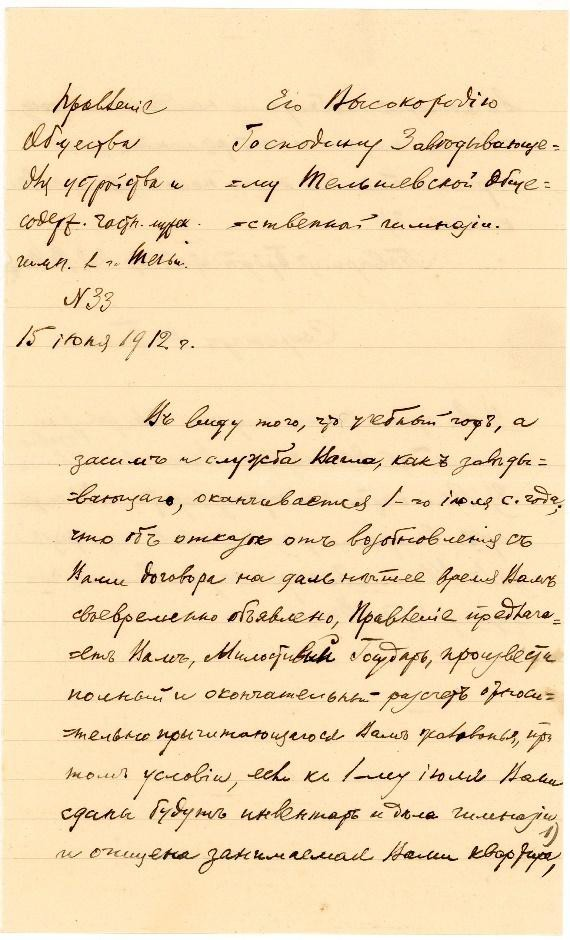 Правленіе
Общества
для устройства и
содерж. частн. мужск.
гимн. въ г. Тельш.
N 33
15 іюня 1912 г.
Его Высокородію
Господину Завѣдывающе=
=му Тельшевской Обще=
=ственной гимназіи.
Въ виду того, что учебный годъ, а
засимъ и служба Ваша, какъ завѣды=
=вающаго, оканчивается 1-го іюля с. года,
что объ отказѣ отъ возобновленія съ
Вами договора на дальнѣйшее время Вамъ
своевременно объявлено, Правленіе предлага=
=етъ Вамъ, Милостивый Государь, произвести
полный и окончательный расчетъ относи=
=тельно причитающагося Вамъ жалованья, при
томъ условіи, если къ 1-му іюля Вами
сданы будутъ инвентарь и дѣла гимназіи
1)
и очищена занимаемая Вами квартира,